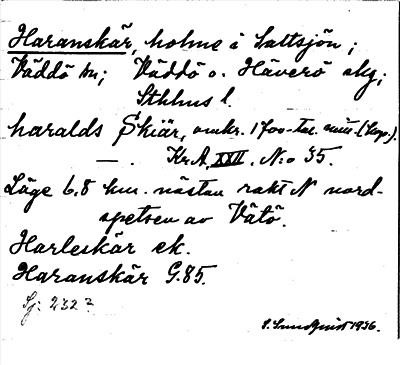 Haranskär, holme i Saltsjön;
Väddö sn; Väddö o. Häverö skg;
Sthlms l.
haralds Skiär, omkr. 1700-tal. (kop.).
— . Kr.A. XXII. N:o 35.
Läge 6.8 km. nästan rakt N nord-
spetsen av Vätö.
Harleskär ek.
Haranskär G.85.
Sj: 232?
S. Sundquist 1936.